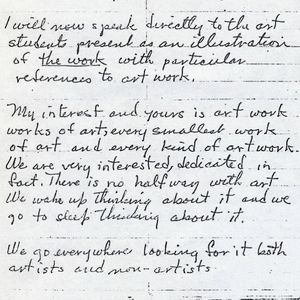 I will now speak directly to the art
students present as an illustration
of the work with particular
references to art work.
My interest and yours is art work
works of art, every smallest work
of art and every kind of art work.
We are very interested, dedicated in
fact. There is no halfway with art
We wake up thinking about it and we
go to sleep thinking about it.
We go everywhere looking for it both
artists and non-artists